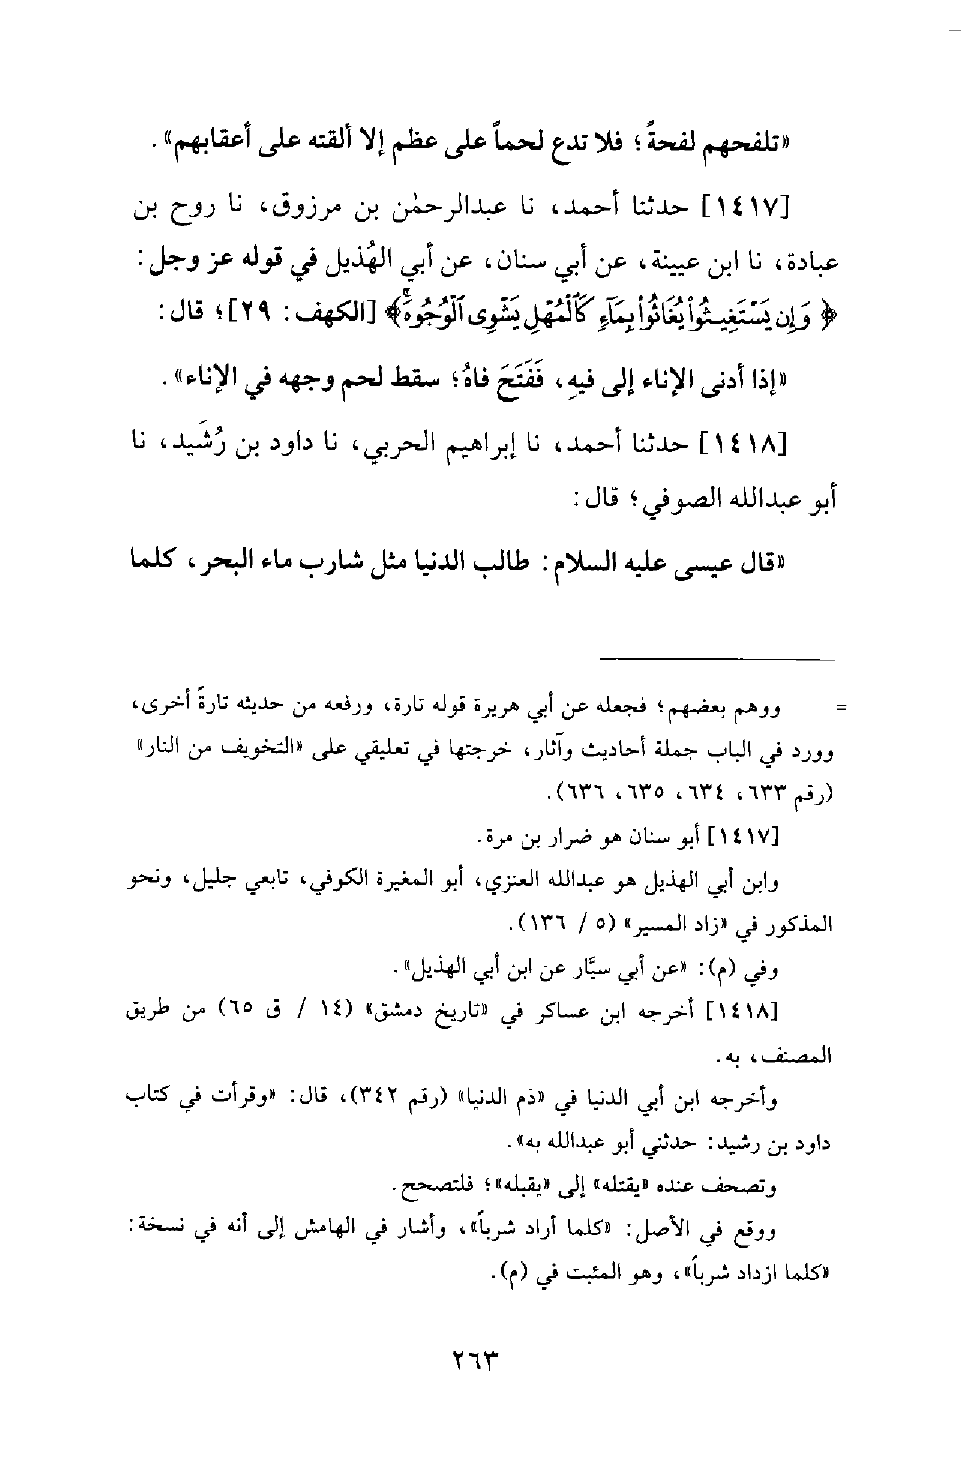 «تلفحهم لفحةً؛ فلا تدع لحماً على عظم إلا ألقته على أعقابهم».
[١٤١٧] حدثنا أحمد، نا عبدالرحمٰن بن مرزوق، نا روح بن
عبادة، نا ابن عيينة، عن أبي سنان، عن أبي الهُذيل في قوله عز وجل:
﴿وَإِن يَسْتَغِيثُوا۟ يُغَاثُوا۟ بِمَآءٍ كَٱلْمُهْلِ يَشْوِى ٱلْوُجُوهَۚ﴾ [الكهف: ٢٩]؛ قال:
«إذا أدنى الإناء إلى فيهِ، فَفَتَحَ فاهُ؛ سقط لحم وجهه في الإناء».
[١٤١٨] حدثنا أحمد، نا إبراهيم الحربي، نا داود بن رُشَيد، نا
أبو عبدالله الصوفي؛ قال:
«قال عيسى عليه السلام: طالب الدنيا مثل شارب ماء البحر، كلما
= ووهم بعضهم؛ فجعله عن أبي هريرة قوله تارة، ورفعه من حديثه تارةً أخرى،
وورد في الباب جملة أحاديث وآثار، خرجتها في تعليقي على «التخويف من النار»
(رقم ٦٣٣، ٦٣٤، ٦٣٥، ٦٣٦).
[١٤١٧] أبو سنان هو ضرار بن مرة.
وابن أبي الهذيل هو عبدالله العنزي، أبو المغيرة الكوفي، تابعي جليل، ونحو
المذكور في «زاد المسير» (٥ / ١٣٦).
وفي (م): «عن أبي سيَّار عن ابن أبي الهذيل».
[١٤١٨] أخرجه ابن عساكر في «تاريخ دمشق» (١٤ / ق ٦٥) من طريق
المصنف، به.
وأخرجه ابن أبي الدنيا في «ذم الدنيا» (رقم ٣٤٢)، قال: «وقرأت في كتاب
داود بن رشيد: حدثني أبو عبدالله به».
وتصحف عنده «يقتله» إلى «يقبله»؛ فلتصحح.
ووقع في الأصل: «كلما أراد شرباً»، وأشار في الهامش إلى أنه في نسخة:
«كلما ازداد شرباً»، وهو المثبت في (م).
٢٦٣